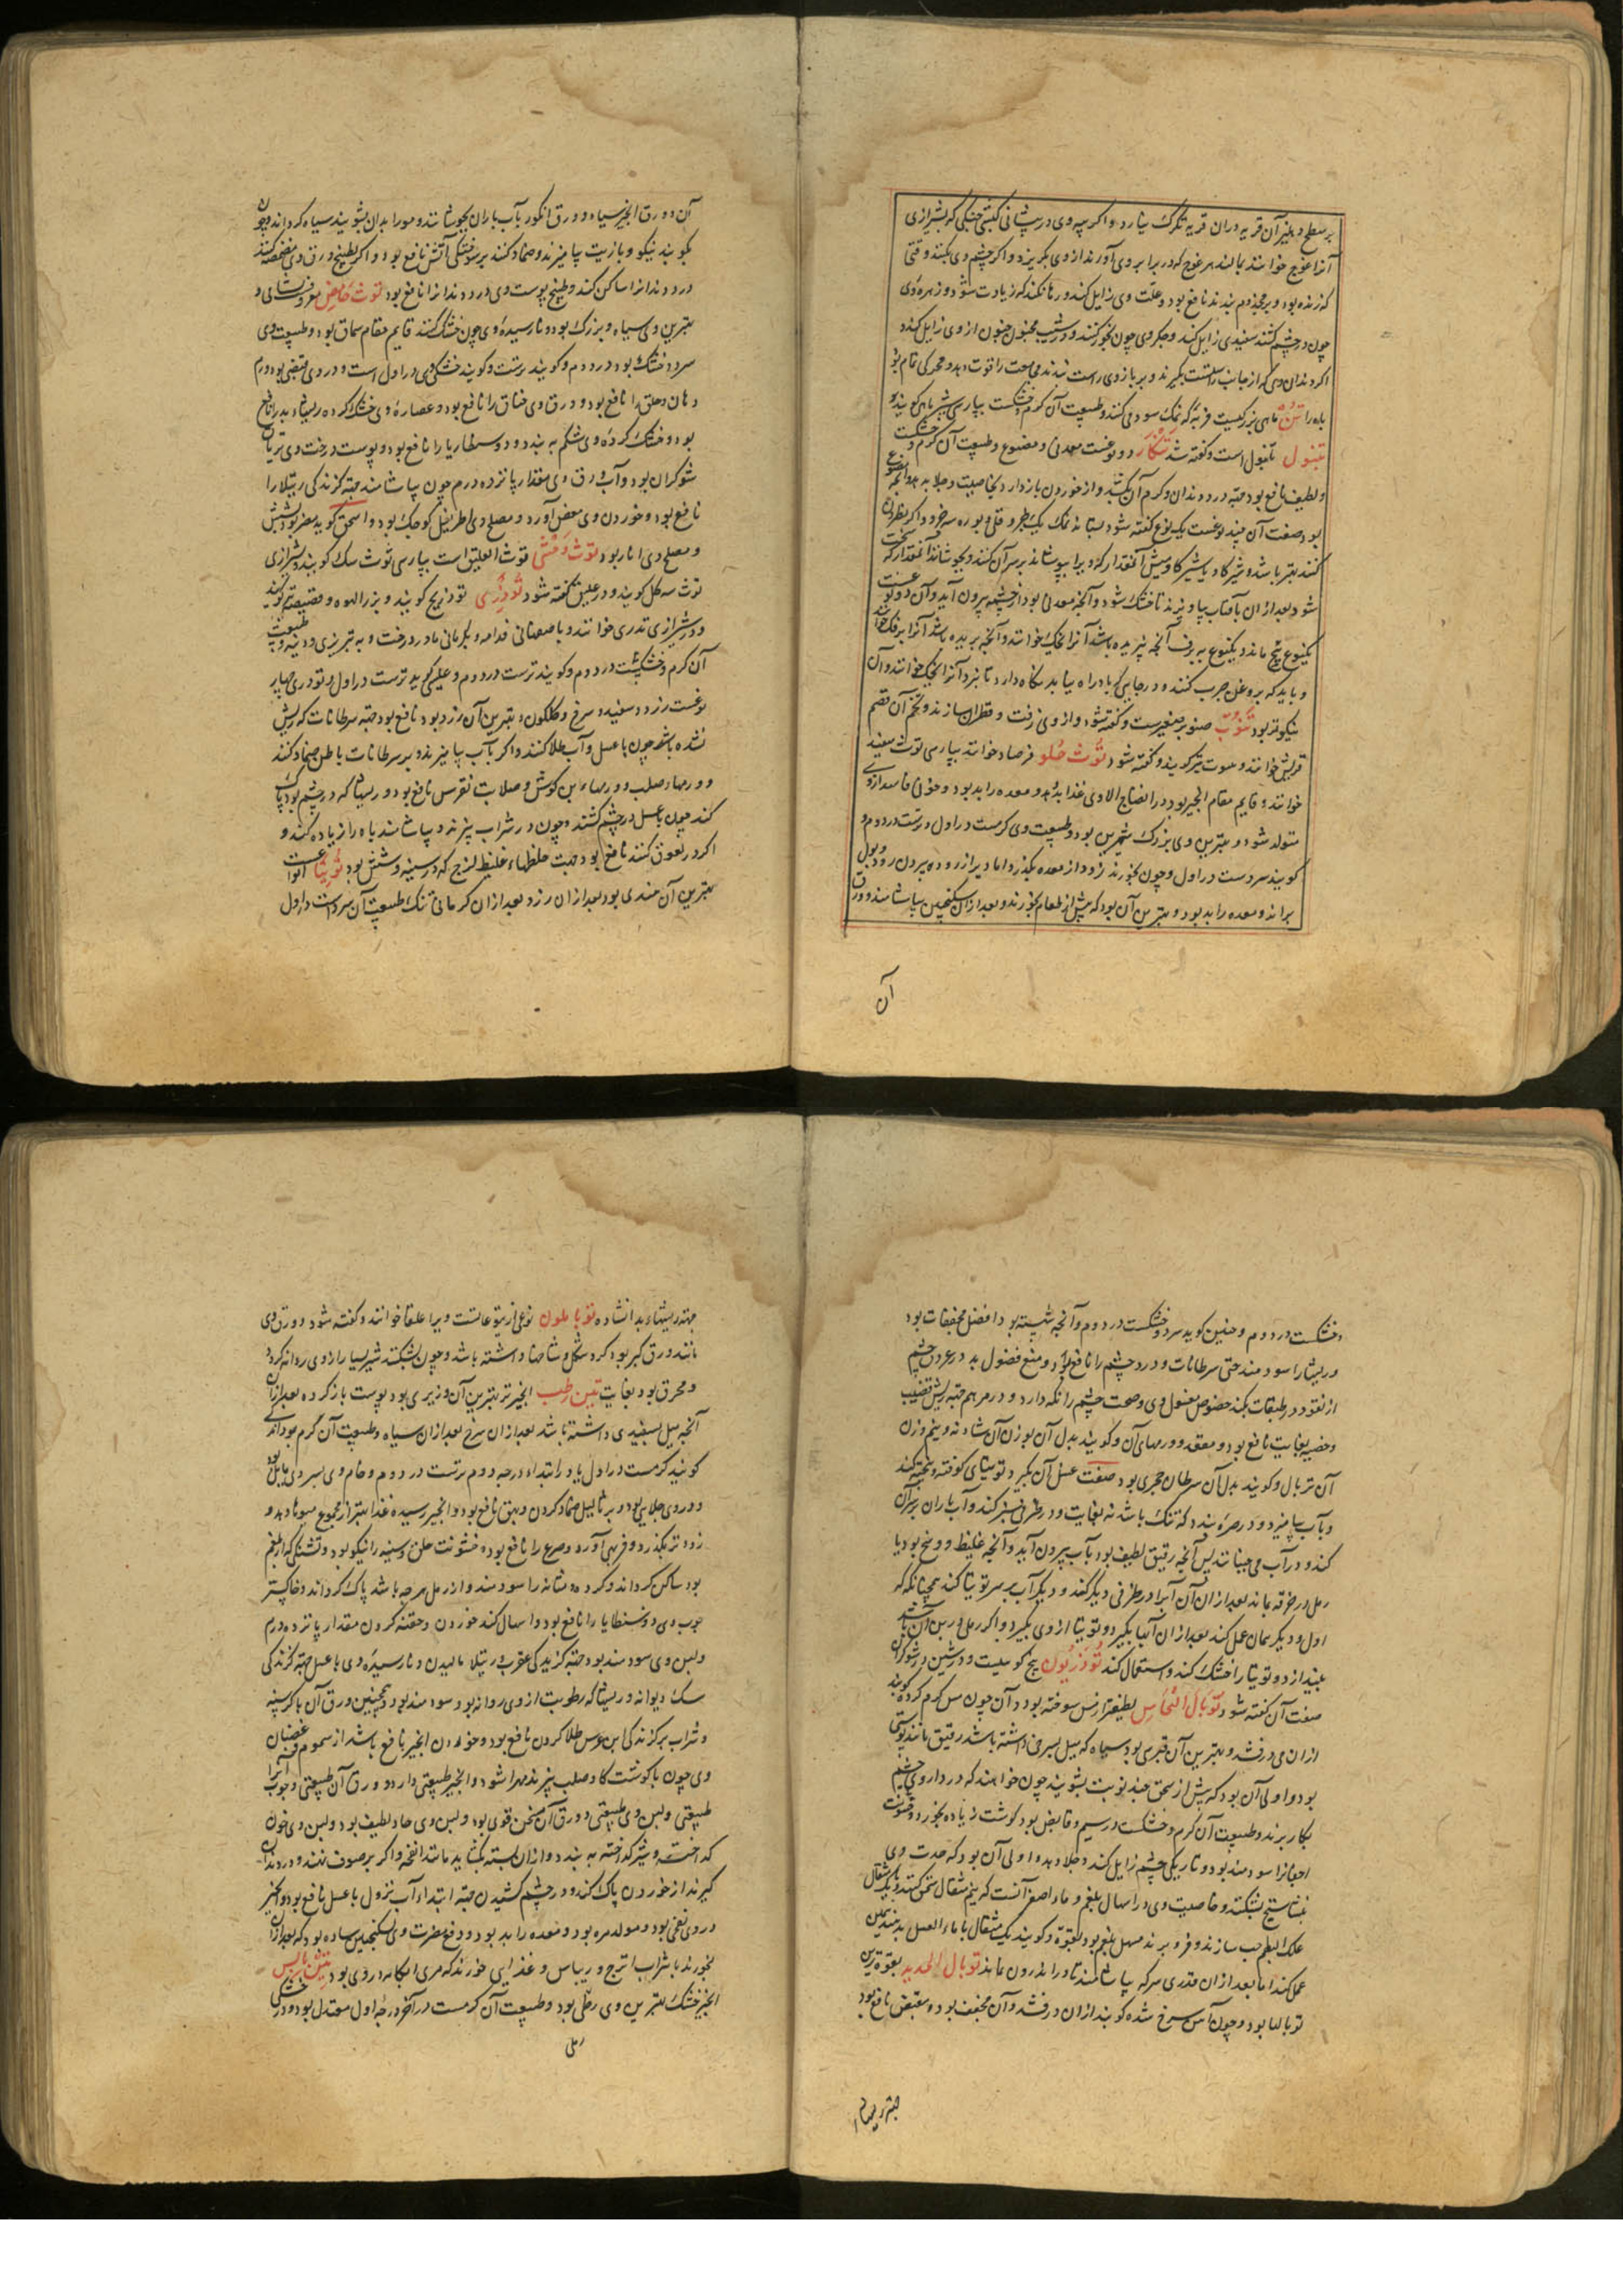 بر سطح و بغیر آن قریه دران قریه تکرک نبارد و اکر پیه وی در پیشانی کبش جنکی که بشیرازی
آنرا غوچ خوانند بمالند هر غوچ که در برابر وی آورند از وی بکریزد و اکر چشم وی بکنند وقتی
که زنده بود و بر مجذوم بندند نافع بود و علت وی زایل کند و رها نکند که زیادت شود و زهره وی
چون در چشم کشند سفیدی زایل کند و جکر وی چون بخور کنند در شیب مجنون جنون از وی زایل کند و
اکر دندان وی که از جانب راست بکیرند و بر بازوی راست بندند مجامعت را قوت دهد و محرکی تمام بود
باه را تن ماهی بزرکیست فربه که نمک سود می کنند و طبیعت آن کرم و خشکست بپارسی شیرماهی کویند و
تنبول تانبول است و کفته شد تنکار دو نوعست معدنی و مصنوع و طبیعت آن کرم و خشکست
و لطیف نافع بود جهة درد دندان و کرم آن بکشد و از خوردن بازدارد بخاصیت و جلا بدهد و آنچه مصنوع
بود صفت آن چند نوعست یک نوع کفته شود بستانند نمک یک جزو قلی و بوره سه جزو و اکر نطرون
کنند بهتر باشد و شیر کاو یا شیر کاومیش آنمقدار که ویرا بپوشاند بر سر آن کنند و بجوشانند آنمقدار که سخت
شود بعد ازان بآفتاب بیاویزند تا خشک شود و آنچه معدنی بود از چشمه بیرون آید و آن دو نوعست
یکنوع بیخ ماند و یکنوع به برف آنچه پنیر دیده باشد آنرا نمک خوانند و آنچه بریده باشد آنرا برفک خوانند
و باید که بروغن چرب کنند و در جایی که باد راه نیابد نکاه دارد تا نبرد آنرا لخک خوانند و آن
نیکوتر بود تنوب صنوبر صغیرست و کفته شود و از وی زفت و قطران سازند و تخم آن قضم
قریش خوانند و بصوت نیز کویند و کفته شود توث حلو فرصاد خوانند بپارسی توث سفید
خوانند و قایم مقام انجیر بود در انضاج الا وی غذا بد دهد و معده را بد بود و خونی فاسد ازوی
متولد شود و بهترین وی بزرک شیرین بود و طبیعت وی کرمست در اول و ترست در دوم و
کویند سردست در اول و چون بخورند زود از معده بکذرد اما دیر از روده بیرون رود و بول
براند و معده را بد بود و بهترین آن بود که پیش از طعام بخورند و بعد ازان سکنجبین بیاشامند و ورق
آن
آن و ورق انجیر سیاه و ورق انکور بآب باران بجوشانند و مورا بدان بشویند سیاه کرداند و چون
بکوبند نیکو و با زیت بیامیزند و ضماد کنند بر سوختکی آتش نافع بود و اکر بطبیخ ورق وی مضمضه کنند
درد دندانرا ساکن کند و طبیخ پوست وی درد دندانرا نافع بود توث حامض معروفست بشامی و
بهترین وی سیاه و بزرک بود و نارسیده وی چون خشک کنند قایم مقام سماق بود و طبیعت وی
سرد و خشک بود در دوم و کویند ترست و کویند خشکی وی در اول است و در وی قبضی بود ورم
دهان و حلق را نافع بود و ورق وی خناق را نافع بود و عصاره وی خشک کرده ریشهاء بد را نافع
بود و خشک کرده وی شکم به بندد و دوسنطاریا را نافع بود و پوست درخت وی تریاق
شوکران بود و آب ورق وی مقدار پانزده درم چون بیاشامند جهة کزندکی رتیلا را
نافع بود و خوردن وی مغص آورد و مصلح وی اطریفل کوچک بود و اسحق کوید مضر بود بشش
و مصلح وی انار بود توث وحشی توث العلیق است بپارسی توث سک کویند و بشیرازی
توث سه کل کویند و در علیق کفته شود تودری تودریج کویند و بزر الهوه و قصیصه کویند
و بشیرازی تدری خوانند و باصفهانی قدامه و بکرمانی مادر درخت و به تبریزی ودینه و طبیعت
آن کرم و خشکست در دوم و کویند ترست در دوم و علی کوید ترست در اول و تودری چهار
نوعست زرد و سفید و سرخ و کلکون و بهترین آن زرد بود نافع بود جهة سرطانات که ریش
نشده باشد چون با عسل و آب طلا کنند و اکر بآب بیامیزند و بر سرطانات باطن ضماد کنند
و ورمهاء صلب و ورمهاء بن کوش و صلابت نقرس نافع بود و ریشها که در چشم بود پاک
کند چون با عسل در چشم کشند و چون در شراب پزند و بیاشامند باه را زیاده کند و
اکر در لعوق کنند نافع بود جهت خلطهاء غلیظ لزج که در سینه و شش بود توتیا انواعست
بهترین آن هندی بود بعد ازان زرد بعد ازان کرمانی تنک طبیعت آن سردست در اول
و خشکست در دوم و حنین کوید سرد و خشکست در دوم و آنچه شسته بود افضل مجففات بود
و ریشها را سودمند حتی سرطانات و درد چشم را نافع بود و منع فضول بد در عروق چشم
از نفوذ در طبقات بکند خصوص مغسول وی و صحت چشم را نکه دارد و در مرهم جهة ریش قضیب
و خصیه بغایت نافع بود و مقعد و ورمهای آن و کویند بدل آن بوزن آن شادنه و نیم وزن
آن توبال و کویند بدل آن سرطان بحری بود صفت غسل آن بکیرد توتیای کوفته و بیخته کند
و بآب بیامیزد و در صره بندد که تنک باشد نه بغایت و در ظرفی سبز کند و آب باران بر آن
کند و در آب می جنباند پس آنچه رقیق لطیف بود بآب بیرون آید و آنچه غلیظ و وسخ بود یا
رمل در خرقه بماند بعد ازان آن آبرا در ظرفی دیگر کند و دیکر آب بر سر توتیا کند همچنانکه
اول و دیکر همان عمل کند بعد ازان آنها بکیرد و توتیا از وی بکیرد و اکر رمل در بن آن باشد
بیندازد و توتیا را خشک کند و استعمال کند توذریون بیخ کوهیست و در شین در شوکران
صفت آن کفته شود توبال النحاس لطیفتر از مس سوخته بود و آن چون مس کرم کرده کوبند
ازان می درفشد و بهترین آن قبرسی بود سیاه که میل بسرخی داشته باشد رقیق مانند پوستی
بود و اولی آن بود که پیش از سحق چند نوبت بشویند چون خواهند که در داروی چشم
بکار برند و طبیعت آن کرم و خشکست در سیم و قابض بود کوشت زیاده بخورد و خشونت
اجفانرا سودمند بود و تاریکی چشم زایل کند و جلا بدهد و اولی آن بود که حدت وی
بنشاستج بشکنند و خاصیت وی در اسهال بلغم و ماء اصفر آنست که نیم مثقال سحق کنند و با یک مثقال
علک البطم حب سازند و فرو برند مسهل بلغم بود بقوة و کویند یک مثقال با ماء العسل بدهند همین
عمل کند اما بعد ازان قدری سرکه بیاشامند تا در اندرون نماند توبال الحدید بقوةترین
توبالها بود و چون آهن سرخ شده کوبند ازان درفشد و آن مجفف بود و مقبض نافع بود
جهة ریشهاء
جهة ریشهاء بد انشاده توباملون نوعی از یتوعاتست و ویرا علقا خوانند و کفته شود و ورق وی
مانند ورق کبر بود کرد شکل شاخها داشته باشد و چون بشکنند شیر بسیار از وی روانه کردد
و محرق بود بغایت تین رطب انجیر تر بهترین آن وزیری بود پوست باز کرده بعد ازان
آنچه میل بسفیدی داشته باشد بعد ازان سرخ بعد ازان سیاه و طبیعت آن گرم بود اندکی
کویند کرمست در اول یا در ابتداء درجه دوم ترست در دوم و خام وی بسردی مایل بود
و در وی جلایی بود و بر ثآلیل ضماد کردن و بهق نافع بود و انجیر رسیده غذا بهتر از مجموع میوها دهد و
زودتر بکذرد و فربهی آورد و صرع را نافع بود و خشونت حلق و سینه را نیکو بود و تشنکی که از بلغم
بود ساکن کرداند و کرده و مثانه را سودمند و از رمل هرچه باشد پاک کرداند و خاکستر
چوب وی دوسنطاریا را نافع بود و اسهال کند خوردن و حقنه کردن مقدار پانزده درم
و لبن وی سودمند بود جهة کزیدکی عقرب و رتیلا مالیدن و نارسیده وی با عسل جهة کزندکی
سک دیوانه و ریشها که رطوبت از وی روانه بود سودمند بود و همچنین ورق آن با کرسنه
و شراب بر کزندکی ابن عرس طلا کردن نافع بود و خوردن انجیر نافع باشد از سموم و قضبان
وی چون با کوشت کاو صلب پزند مهرا شود و انجیر طبیعتی دارد و ورق آن طبیعتی و چوب آنرا
طبیعتی و لبن وی طبیعتی و ورق آن مسخن قوی بود و لبن وی حاد لطیف بود و لبن وی خون
کداخته و شیر کداخته به بندد و ازان بسته بکشاید مانند انفحه و اکر بر صوف نهند و در دندان
کیرند از خوردن پاک کند و در چشم کشیدن جهة ابتداء آب نزول با عسل نافع بود و انجیر
در وی نفخی بود و مولد مره بود و معده را بد بود و دفع مضرت وی سکنجبین ساده بود که بعد ازان
بخورند با شراب اترج و ریباس و غذایی خورند که مری آبکامه در وی بود تین یابس
انجیر خشک بهترین وی رطلی بود و طبیعت آن کرمست در آخر درجه اول معتدل بود و در خشکی